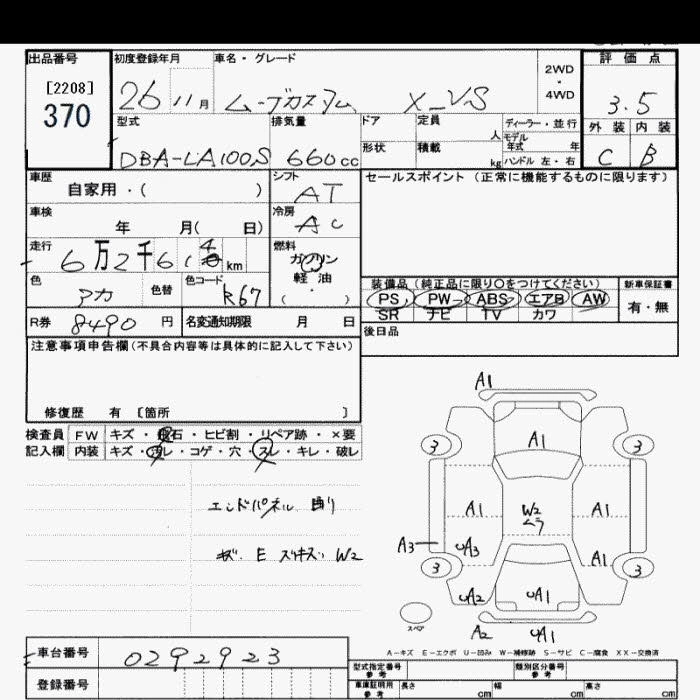 出品番号 初度登録年月 車名・グレード 2WD・4WD 評価点
[2208]
370
26 11月 ムーブカスタム X-VS 3.5
型式 排気量 ドア 定員 人 ディーラー・並行 外装 内装
モデル年式 年
DBA-LA100S 660cc 形状 積載 kg ハンドル 左・右 C B
車歴 シフト セールスポイント（正常に機能するものに限ります）
自家用・( ) AT
車検 冷房
年 月( 日) AC
走行 燃料
6万2千61 km ガソリン
軽油
(・)
色 色替 色コード 装備品（純正品に限り○をつけてください） 新車保証書
アカ R67 PS PW ABS エアB AW 有・無
SR ナビ TV カワ
R券 8490円 名変通知期限 月 日 後日品
注意事項申告欄（不具合内容等は具体的に記入して下さい）
修復歴 有 [箇所 ]
検査員 FW キズ・飛石・ヒビ割・リペア跡・×要
記入欄 内装 キズ・汚レ・コゲ・穴・スレ・キレ・破レ
エンドパネル 曲り
キズ E W2
A1
3 3
A1
A1 W2 ムラ A1
A3 UA3 A1
3 3
UA2 UA1
スペア A2 UA1
A-キズ E-エクボ U-凹み W-補修跡 S-サビ C-腐食 XX-交換済
車台番号 0292923
登録番号
型式指定番号 参考 類別区分番号 参考
車庫証明用 参考 長さ cm 幅 cm 高さ cm